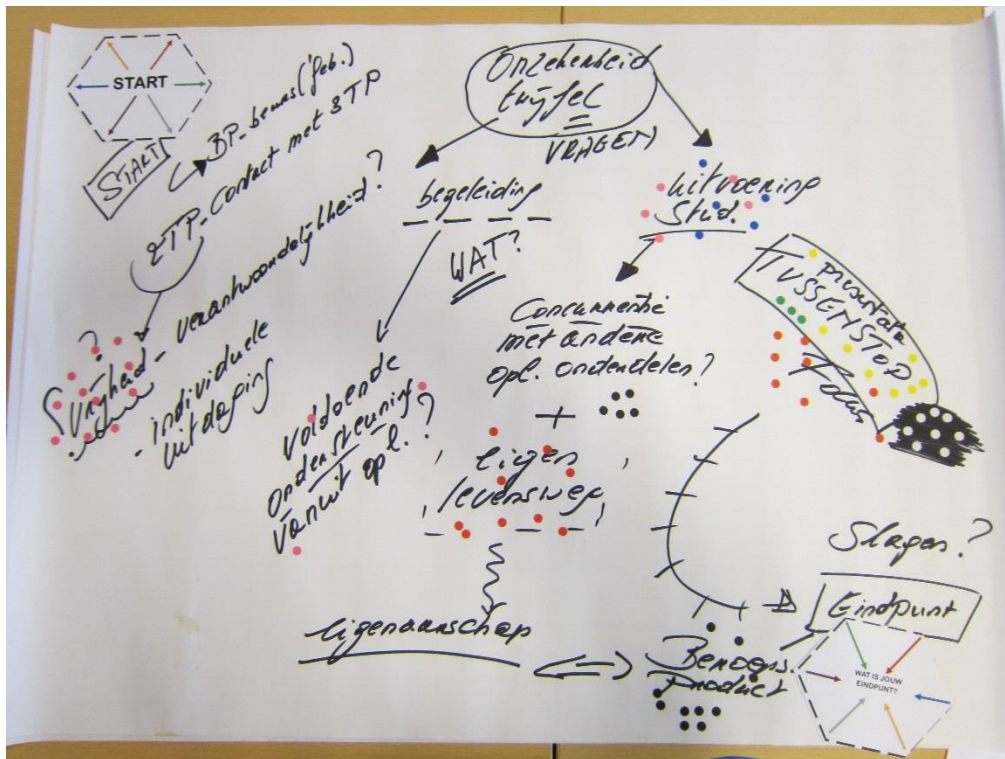 START
START
BP-bewust (feb.)
2TP-contact met 3TP
?
Vrijheid - verantwoordelijkheid?
- individuele
uitdaging
Onzekerheid
twijfel
=
VRAGEN
begeleiding
WAT?
voldoende
ondersteuning
vanuit opl.?
uitvoering
Stud.
Concurrentie
met andere
opl. onderdelen?
+
eigen
levensweg
eigenaarschap
presentatie
TUSSENSTOP
Focus
Slagen?
Eindpunt
Beroeps.
Product
WAT IS JOUW
EINDPUNT?